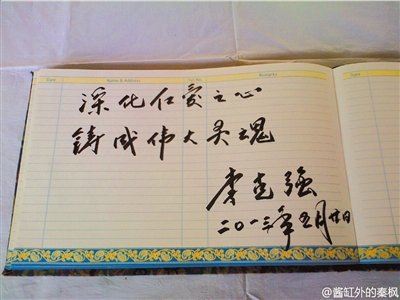 Date Name & Address Tel No. Remarks Date
深化仁爱之心
铸成伟大灵魂
李克强
二〇一三年五月廿日
@酱缸外的秦枫